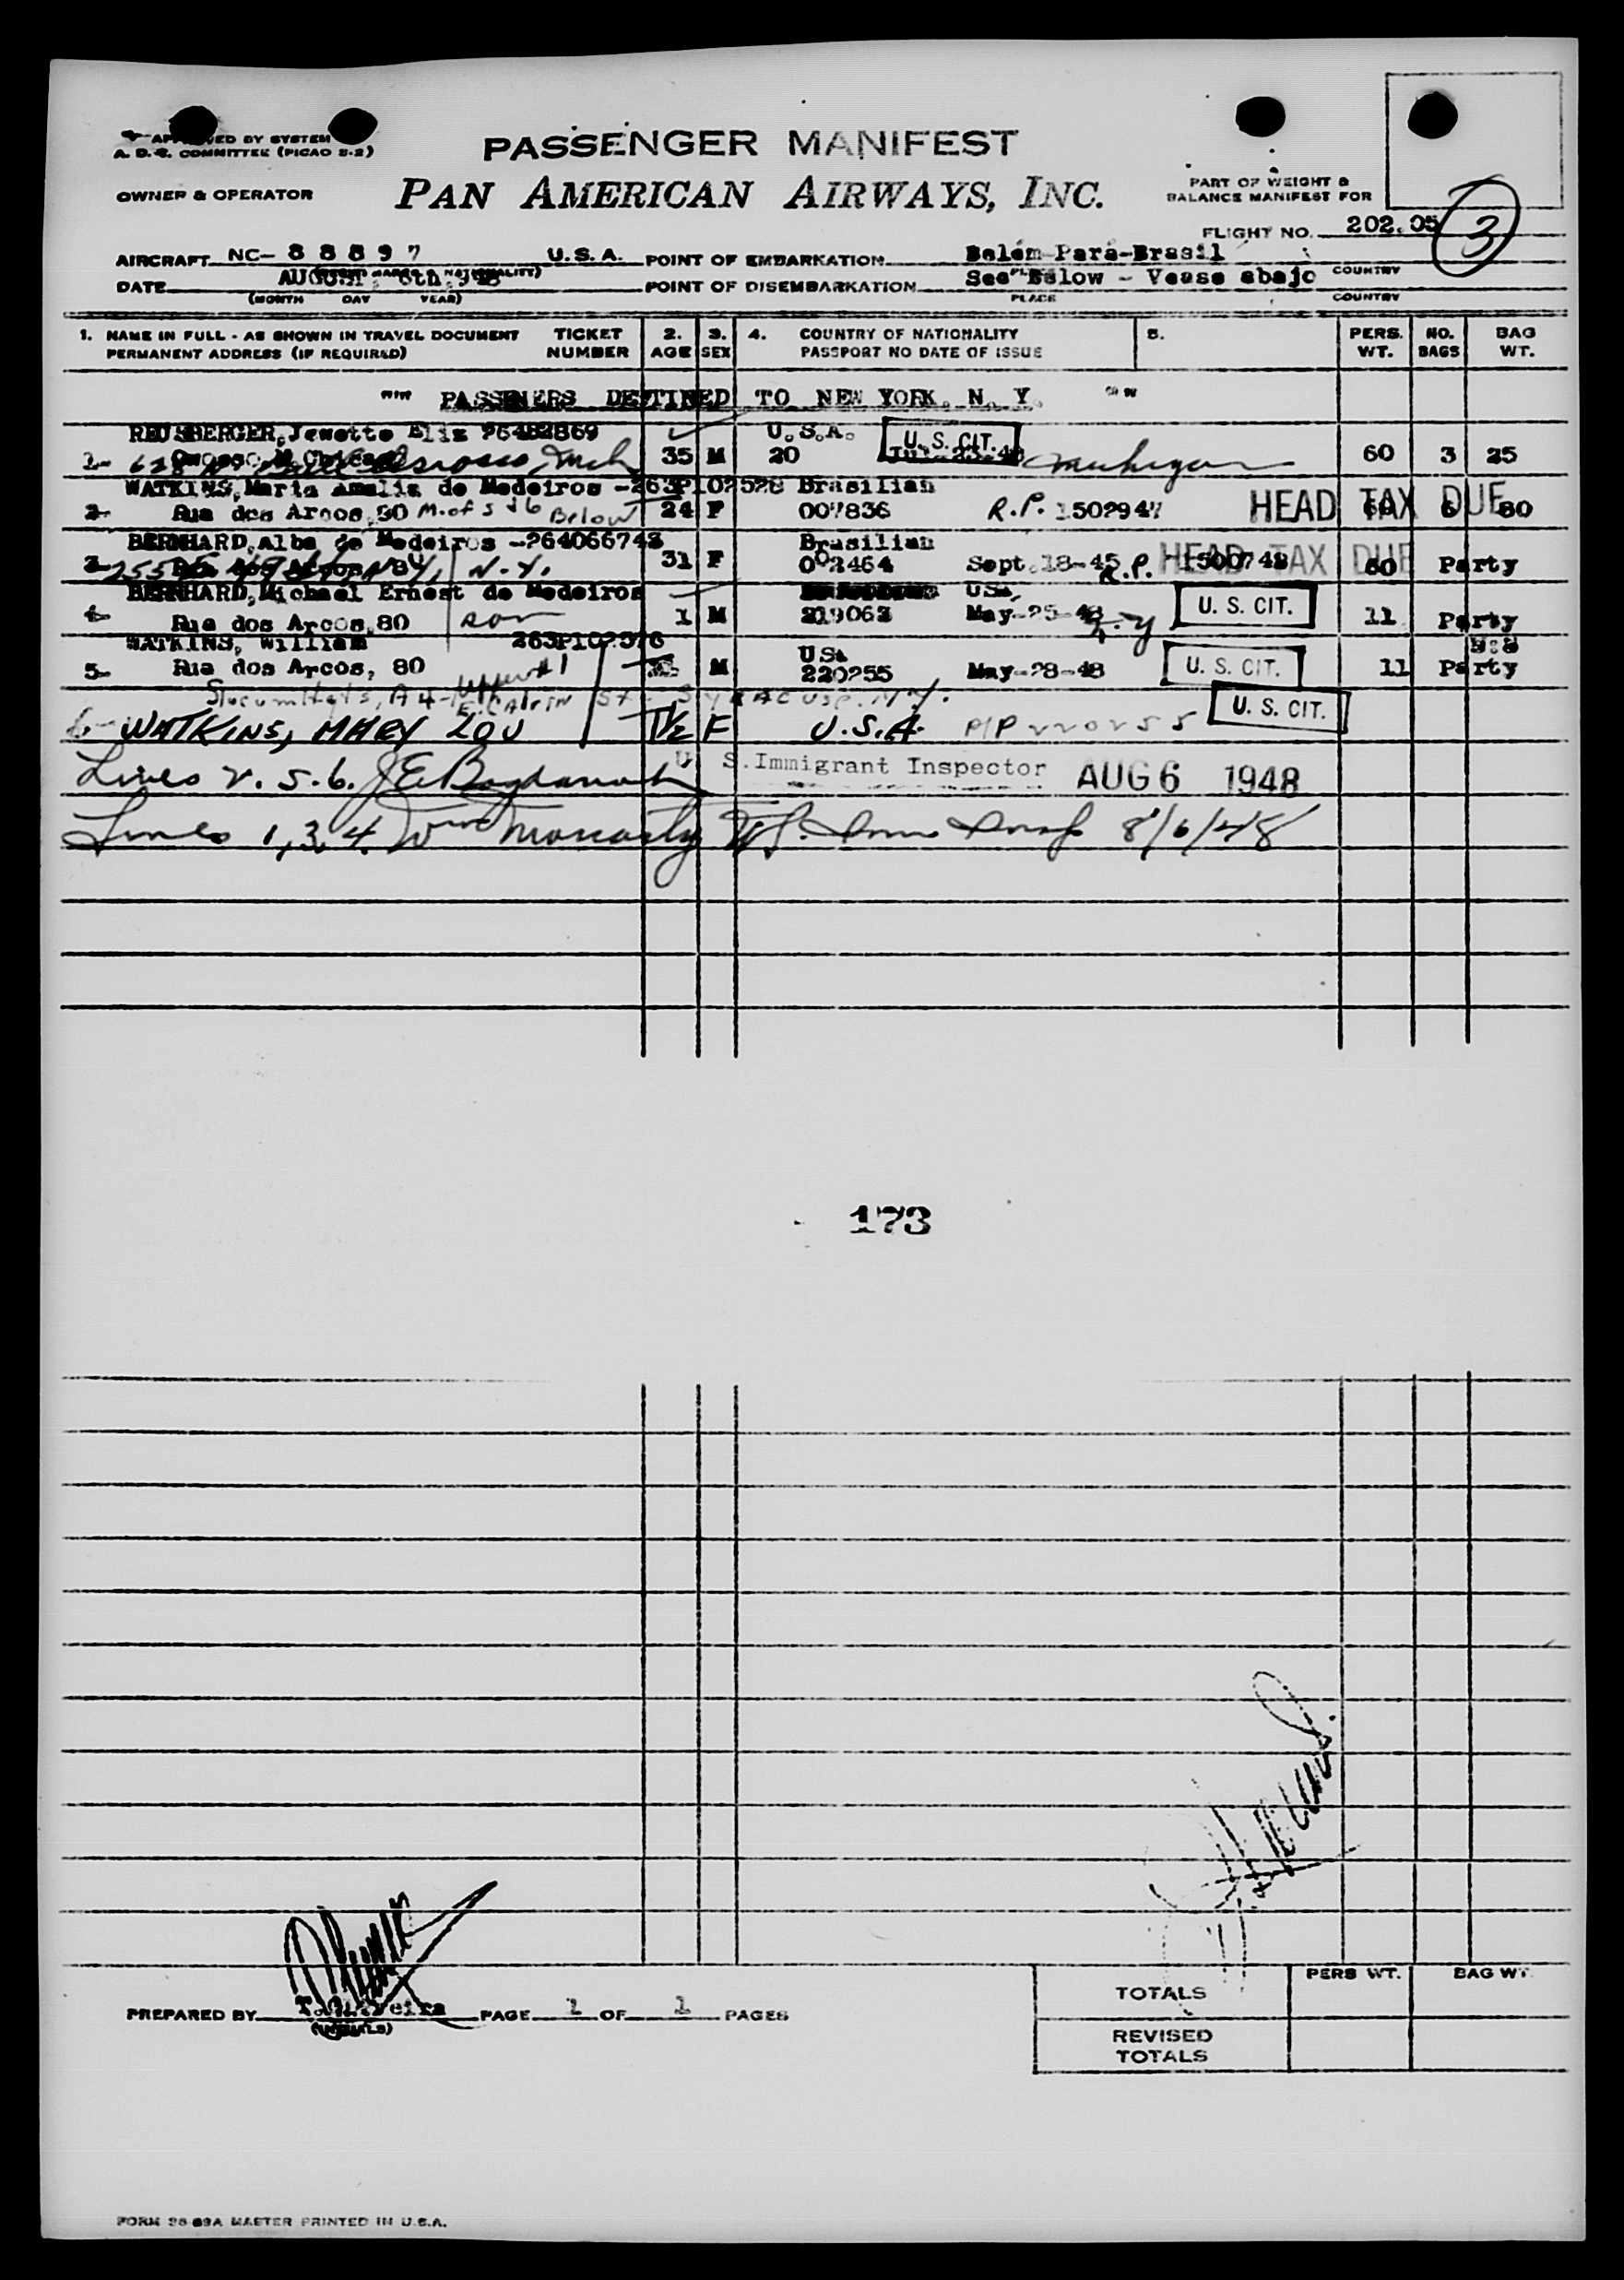 APPROVED BY SYSTEM
A. D. R. COMMITTEE (PICAO 2-2)
PASSENGER MANIFEST
OWNER & OPERATOR
PAN AMERICAN AIRWAYS, INC.
PART OF WEIGHT &
BALANCE MANIFEST FOR
FLIGHT NO. 202.05
3
AIRCRAFT NC- 88897 U.S.A. POINT OF EMBARKATION Belém-Pará-Brasil
DATE AUGUST, 6th, 948 POINT OF DISEMBARKATION See Below - Vease abajo
(MONTH DAY YEAR) PLACE COUNTRY
1. NAME IN FULL - AS SHOWN IN TRAVEL DOCUMENT TICKET 2. 3. 4. COUNTRY OF NATIONALITY 5. PERS. NO. BAG
PERMANENT ADDRESS (IF REQUIRED) NUMBER AGE SEX PASSPORT NO DATE OF ISSUE WT. BAGS WT.
"" PASSENERS DESTINED TO NEW YORK, N. Y. ""
Jenette Elis 26482869 U.S.A. U. S. CIT.
1- Owosso, Mich 35 M 20 Jul-23-48 Michigan 60 3 25
WATKINS, Maria Amelia de Medeiros -263P102528 Brasilian
2- Rua dos Arcos, 80 M. of 5 & 6 Below 24 F 007836 R.P. 1502947 HEAD TAX DUE 6 80
BERNHARD, Alba de Medeiros -264066748 Brasilian
3- N.Y. 31 F 002464 Sept. 18-45 R.P. 1500748 HEAD TAX DUE 60 Party
BERNHARD, Michael Ernest de Medeiros USA
4- Rua dos Arcos, 80 son 1 M 219063 May-25-48 N.Y U. S. CIT. 11 Party
WATKINS, William 263P102576 USA
5- Rua dos Arcos, 80 M 220255 May-28-48 U. S. CIT. 11 Party
Slocum Hgts, A4- E. Calvin St. SYRACUSE. N.Y.
6- WATKINS, MARY LOU 1½ F U.S.A. P/P 220255 U. S. CIT.
Lines 2. 5. 6. U. S. Immigrant Inspector AUG 6 1948
Lines 1, 3, 4. Wm Moriarty 8/6/48
173
PREPARED BY PAGE 1 OF 1 PAGES
(INITIALS)
PERS WT. BAG WT.
TOTALS
REVISED
TOTALS
FORM 26-09A MASTER PRINTED IN U.S.A.